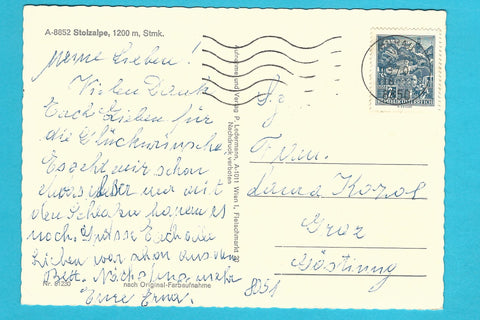 A-8852 Stolzalpe, 1200 m, Stmk.
Meine Lieben!
Vielen Dank
Euch Lieben für
die Glückwünsche
Es geht mir schon
etwas aber nur mit
den haperts es
noch. Grüsse Euch alle
Lieben von aus dem
Bett. Nächstens mehr
Eure Erna.
Nr. 81230
nach Original-Farbaufnahme
Aufnahme und Verlag P. Ledermann, A-1011 Wien I, Fleischmarkt 20
Nachdruck verboten
Fam.
Kozol
Graz
Gösting
8051